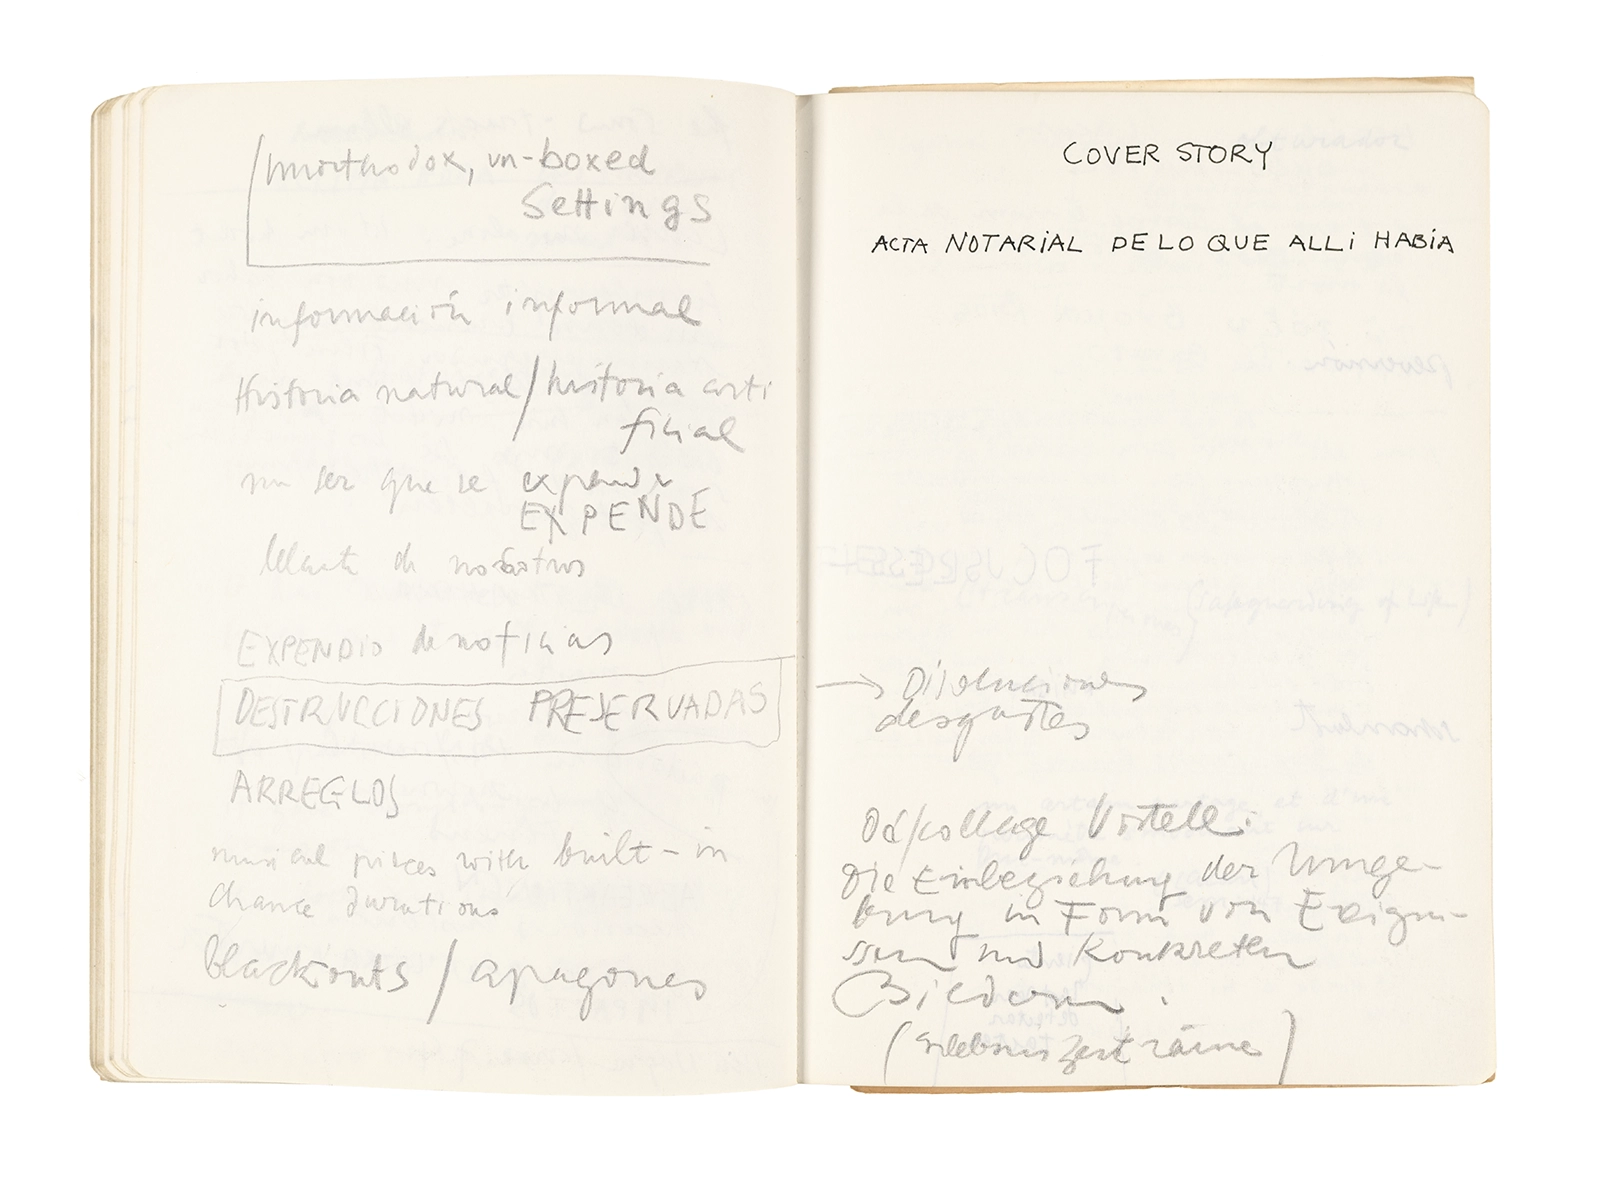 unorthodox, un-boxed
Settings
información informal
Historia natural / historia arti
ficial
un ser que se expende
EXPENDE
delante de nosotros
EXPENDIO de noticias
DESTRUCCIONES PRESERVADAS
ARREGLOS
musical pieces with built-in
chance durations
blackouts / apagones
COVER STORY
ACTA NOTARIAL DE LO QUE ALLI HABÍA
→ Disoluciones
desgastes
Dé/collage Vostell:
Die Einbeziehung der Umge-
bung in Form von Ereignis-
ssen und Konkreten
Bildern.
(Erlebniszeiträume)